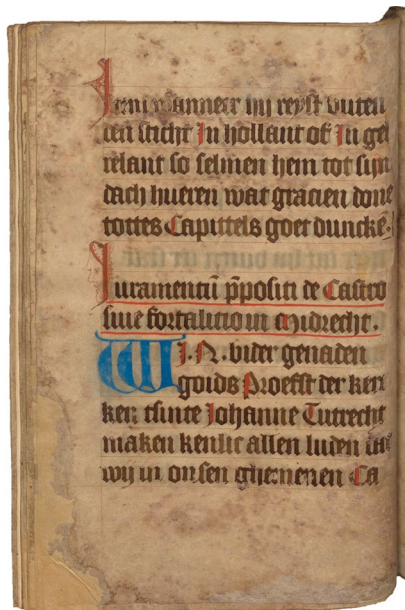 Item wanneer hij reyst buten
den sticht In hollant of In gel
relant so selmen hem tot sijn
dach hueren wat gracien done
tottes Capittels goet duncke.
Iuramentū p̄positi de Castro
siue fortalitio in Midrecht.
WI. N. bider genaden
goids Proefst der ker
ken tsinte Johanne Tutrecht
maken kenlic allen luden dat
wij in onsen ghemenen Ca